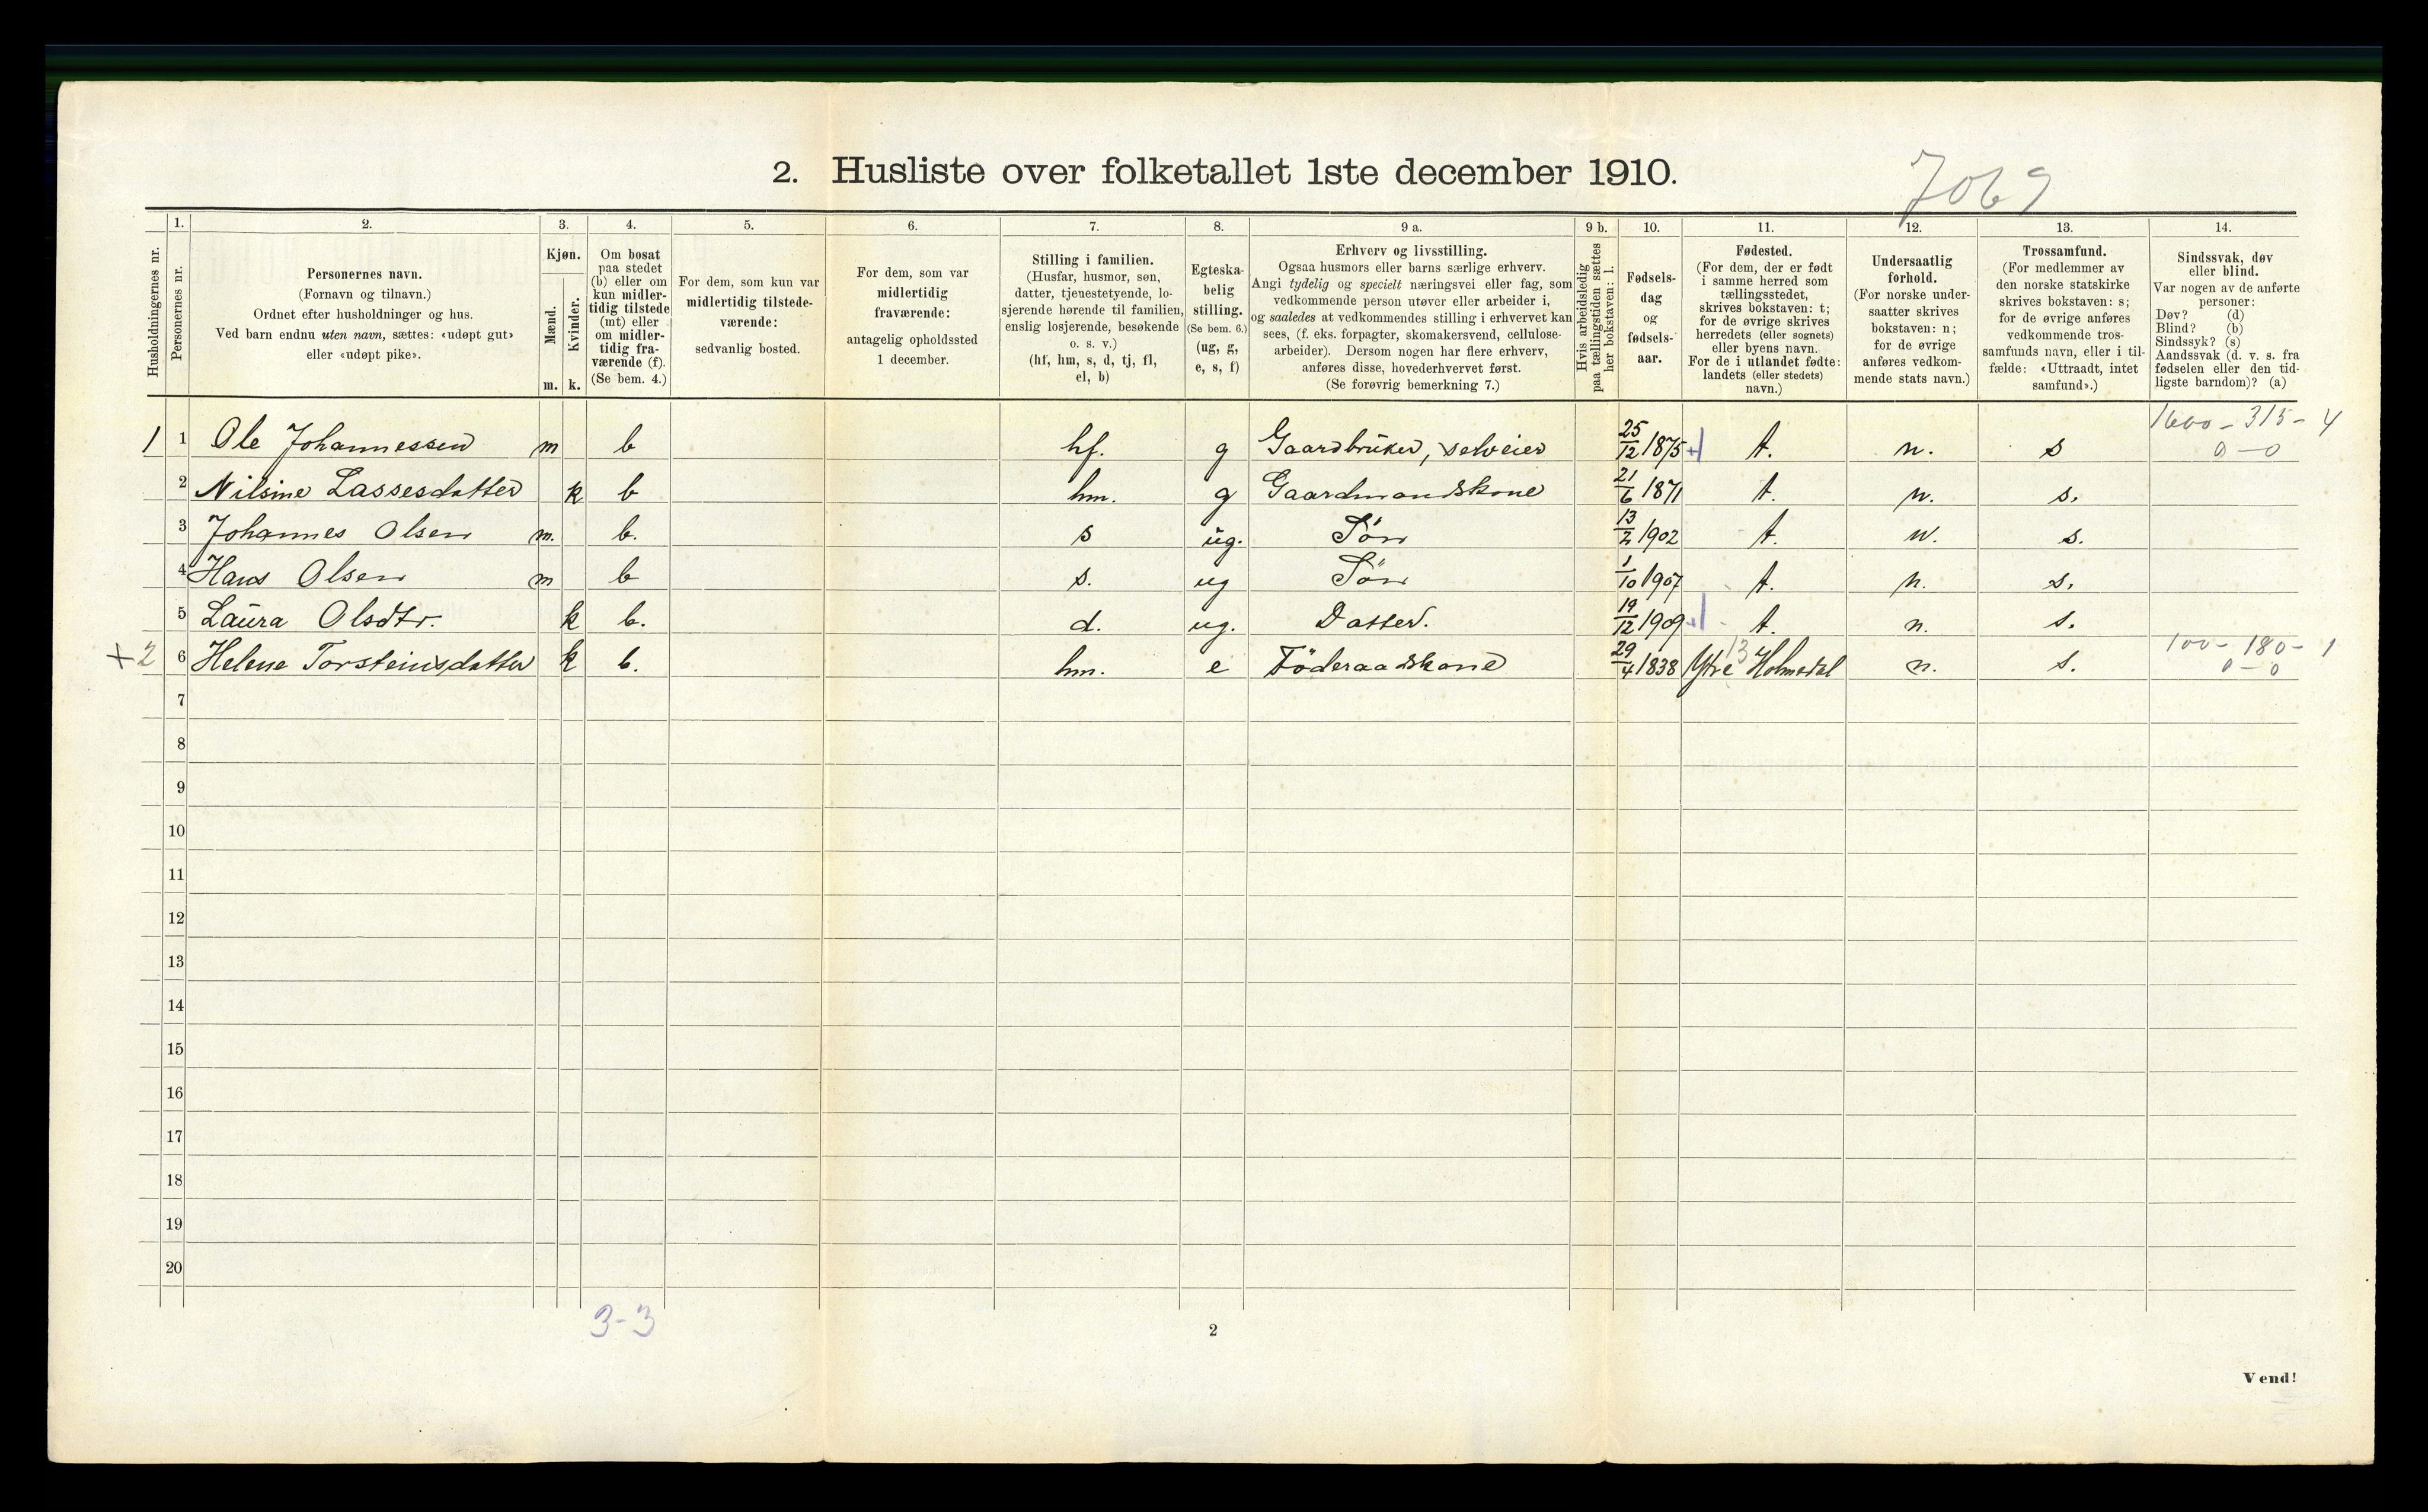 2. Husliste over folketallet 1ste december 1910.
7069
Husholdningernes nr.
1.
Personernes nr.
2.
Personernes navn.
(Fornavn og tilnavn.)
Ordnet efter husholdninger og hus.
Ved barn endnu uten navn, sættes: «udøpt gut»
eller «udøpt pike».
3.
Kjøn.
Mænd.
Kvinder.
m. k.
4.
Om bosat
paa stedet
(b) eller om
kun midler-
tidig tilstede
(mt) eller
om midler-
tidig fra-
værende (f).
(Se bem. 4.)
5.
For dem, som kun var
midlertidig tilstede-
værende:
sedvanlig bosted.
6.
For dem, som var
midlertidig
fraværende:
antagelig opholdssted
1 december.
7.
Stilling i familien.
(Husfar, husmor, søn,
datter, tjenestetyende, lo-
sjerende hørende til familien,
enslig losjerende, besøkende
o. s. v.)
(hf, hm, s, d, tj, fl,
el, b)
8.
Egteska-
belig
stilling.
(Se bem. 6.)
(ug, g,
e, s, f)
9 a.
Erhverv og livsstilling.
Ogsaa husmors eller barns særlige erhverv.
Angi tydelig og specielt næringsvei eller fag, som
vedkommende person utøver eller arbeider i,
og saaledes at vedkommendes stilling i erhvervet kan
sees, (f. eks. forpagter, skomakersvend, cellulose-
arbeider). Dersom nogen har flere erhverv,
anføres disse, hovederhvervet først.
(Se forøvrig bemerkning 7.)
9 b.
Hvis arbeidsledig
paa tællingstiden sættes
her bokstaven: l.
10.
Fødsels-
dag
og
fødsels-
aar.
11.
Fødested.
(For dem, der er født
i samme herred som
tællingsstedet,
skrives bokstaven: t;
for de øvrige skrives
herredets (eller sognets)
eller byens navn.
For de i utlandet fødte:
landets (eller stedets)
navn.)
12.
Undersaatlig
forhold.
(For norske under-
saatter skrives
bokstaven: n;
for de øvrige
anføres vedkom-
mende stats navn.)
13.
Trossamfund.
(For medlemmer av
den norske statskirke
skrives bokstaven: s;
for de øvrige anføres
vedkommende tros-
samfunds navn, eller i til-
fælde: «Uttraadt, intet
samfund».)
14.
Sindssvak, døv
eller blind.
Var nogen av de anførte
personer:
Døv? (d)
Blind? (b)
Sindssyk? (s)
Aandssvak (d. v. s. fra
fødselen eller den tid-
ligste barndom)? (a)
1 1 Ole Johannessen m b hf. g Gaardbruker, selveier 25/12 1875 t. n. s 1600 - 315 - 4
0 - 0
2 Nilsine Lassesdatter k b hm. g Gaardmandskone 21/6 1871 t. n. s.
3 Johannes Olsen m. b. s ug. Søn 13/2 1902 t. n. s.
4 Hans Olsen m b s. ug Søn 1/10 1907 t. n. s.
5 Laura Olsdtr. k b. d. ug. Datter. 19/12 1909 t. n. s.
+2 6 Helene Torsteinsdatter k b. hm. e Föderaadskone 29/4 1838 Ytre Holmedal 13 n. s. 100 - 180 - 1
0 - 0
7
8
9
10
11
12
13
14
15
16
17
18
19
20
3-3
2
Vend!